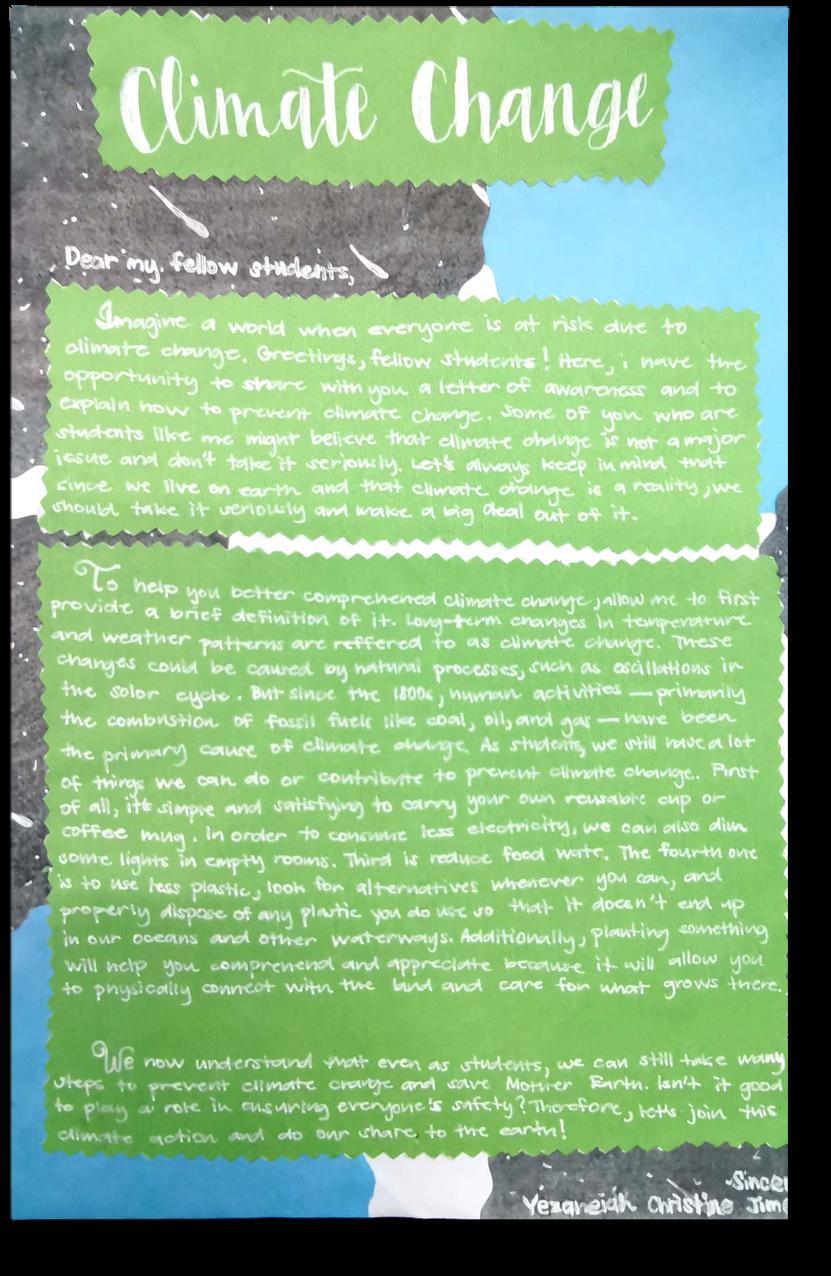 Climate Change
Dear my fellow students,
Imagine a world when everyone is at risk due to
climate change. Greetings, fellow students! Here, i have the
opportunity to share with you a letter of awareness and to
explain how to prevent climate change. Some of you who are
students like me might believe that climate change is not a major
issue and don't take it seriously. Let's always keep in mind that
since we live on earth and that climate change is a reality, we
should take it seriously and make a big deal out of it.
To help you better comprehened climate change, allow me to first
provide a brief definition of it. Long-term changes in temperature
and weather patterns are reffered to as climate change. These
changes could be caused by natural processes, such as oscillations in
the solar cycle. But since the 1800s, human activities — primarily
the combustion of fossil fuels like coal, oil, and gas — have been
the primary cause of climate change. As students, we still have a lot
of things we can do or contribute to prevent climate change. First
of all, it's simple and satisfying to carry your own reusable cup or
coffee mug. In order to consume less electricity, we can also dim
some lights in empty rooms. Third is reduce food wate. The fourth one
is to use less plastic, look for alternatives whenever you can, and
properly dispose of any plastic you do use so that it doesn't end up
in our oceans and other waterways. Additionally, planting something
will help you comprehend and appreciate because it will allow you
to physically connect with the land and care for what grows there.
We now understand that even as students, we can still take many
steps to prevent climate change and save Mother Earth. Isn't it good
to play a role in ensuring everyone's safety? Therefore, let's join this
climate action and do our share to the earth!
-Since
Christine